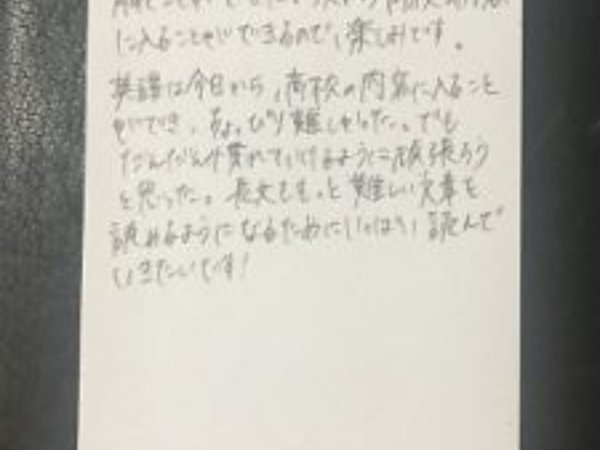 に入ることができるので、楽しみです。
英語は今日から、高校の内容に入ること
ができ、ちょっぴり難しかった。でも
だんだん慣れていけるように頑張ろう
と思った。長文ももっと難しい文章を
読めるようになるためにいっぱい読んで
いきたいです!